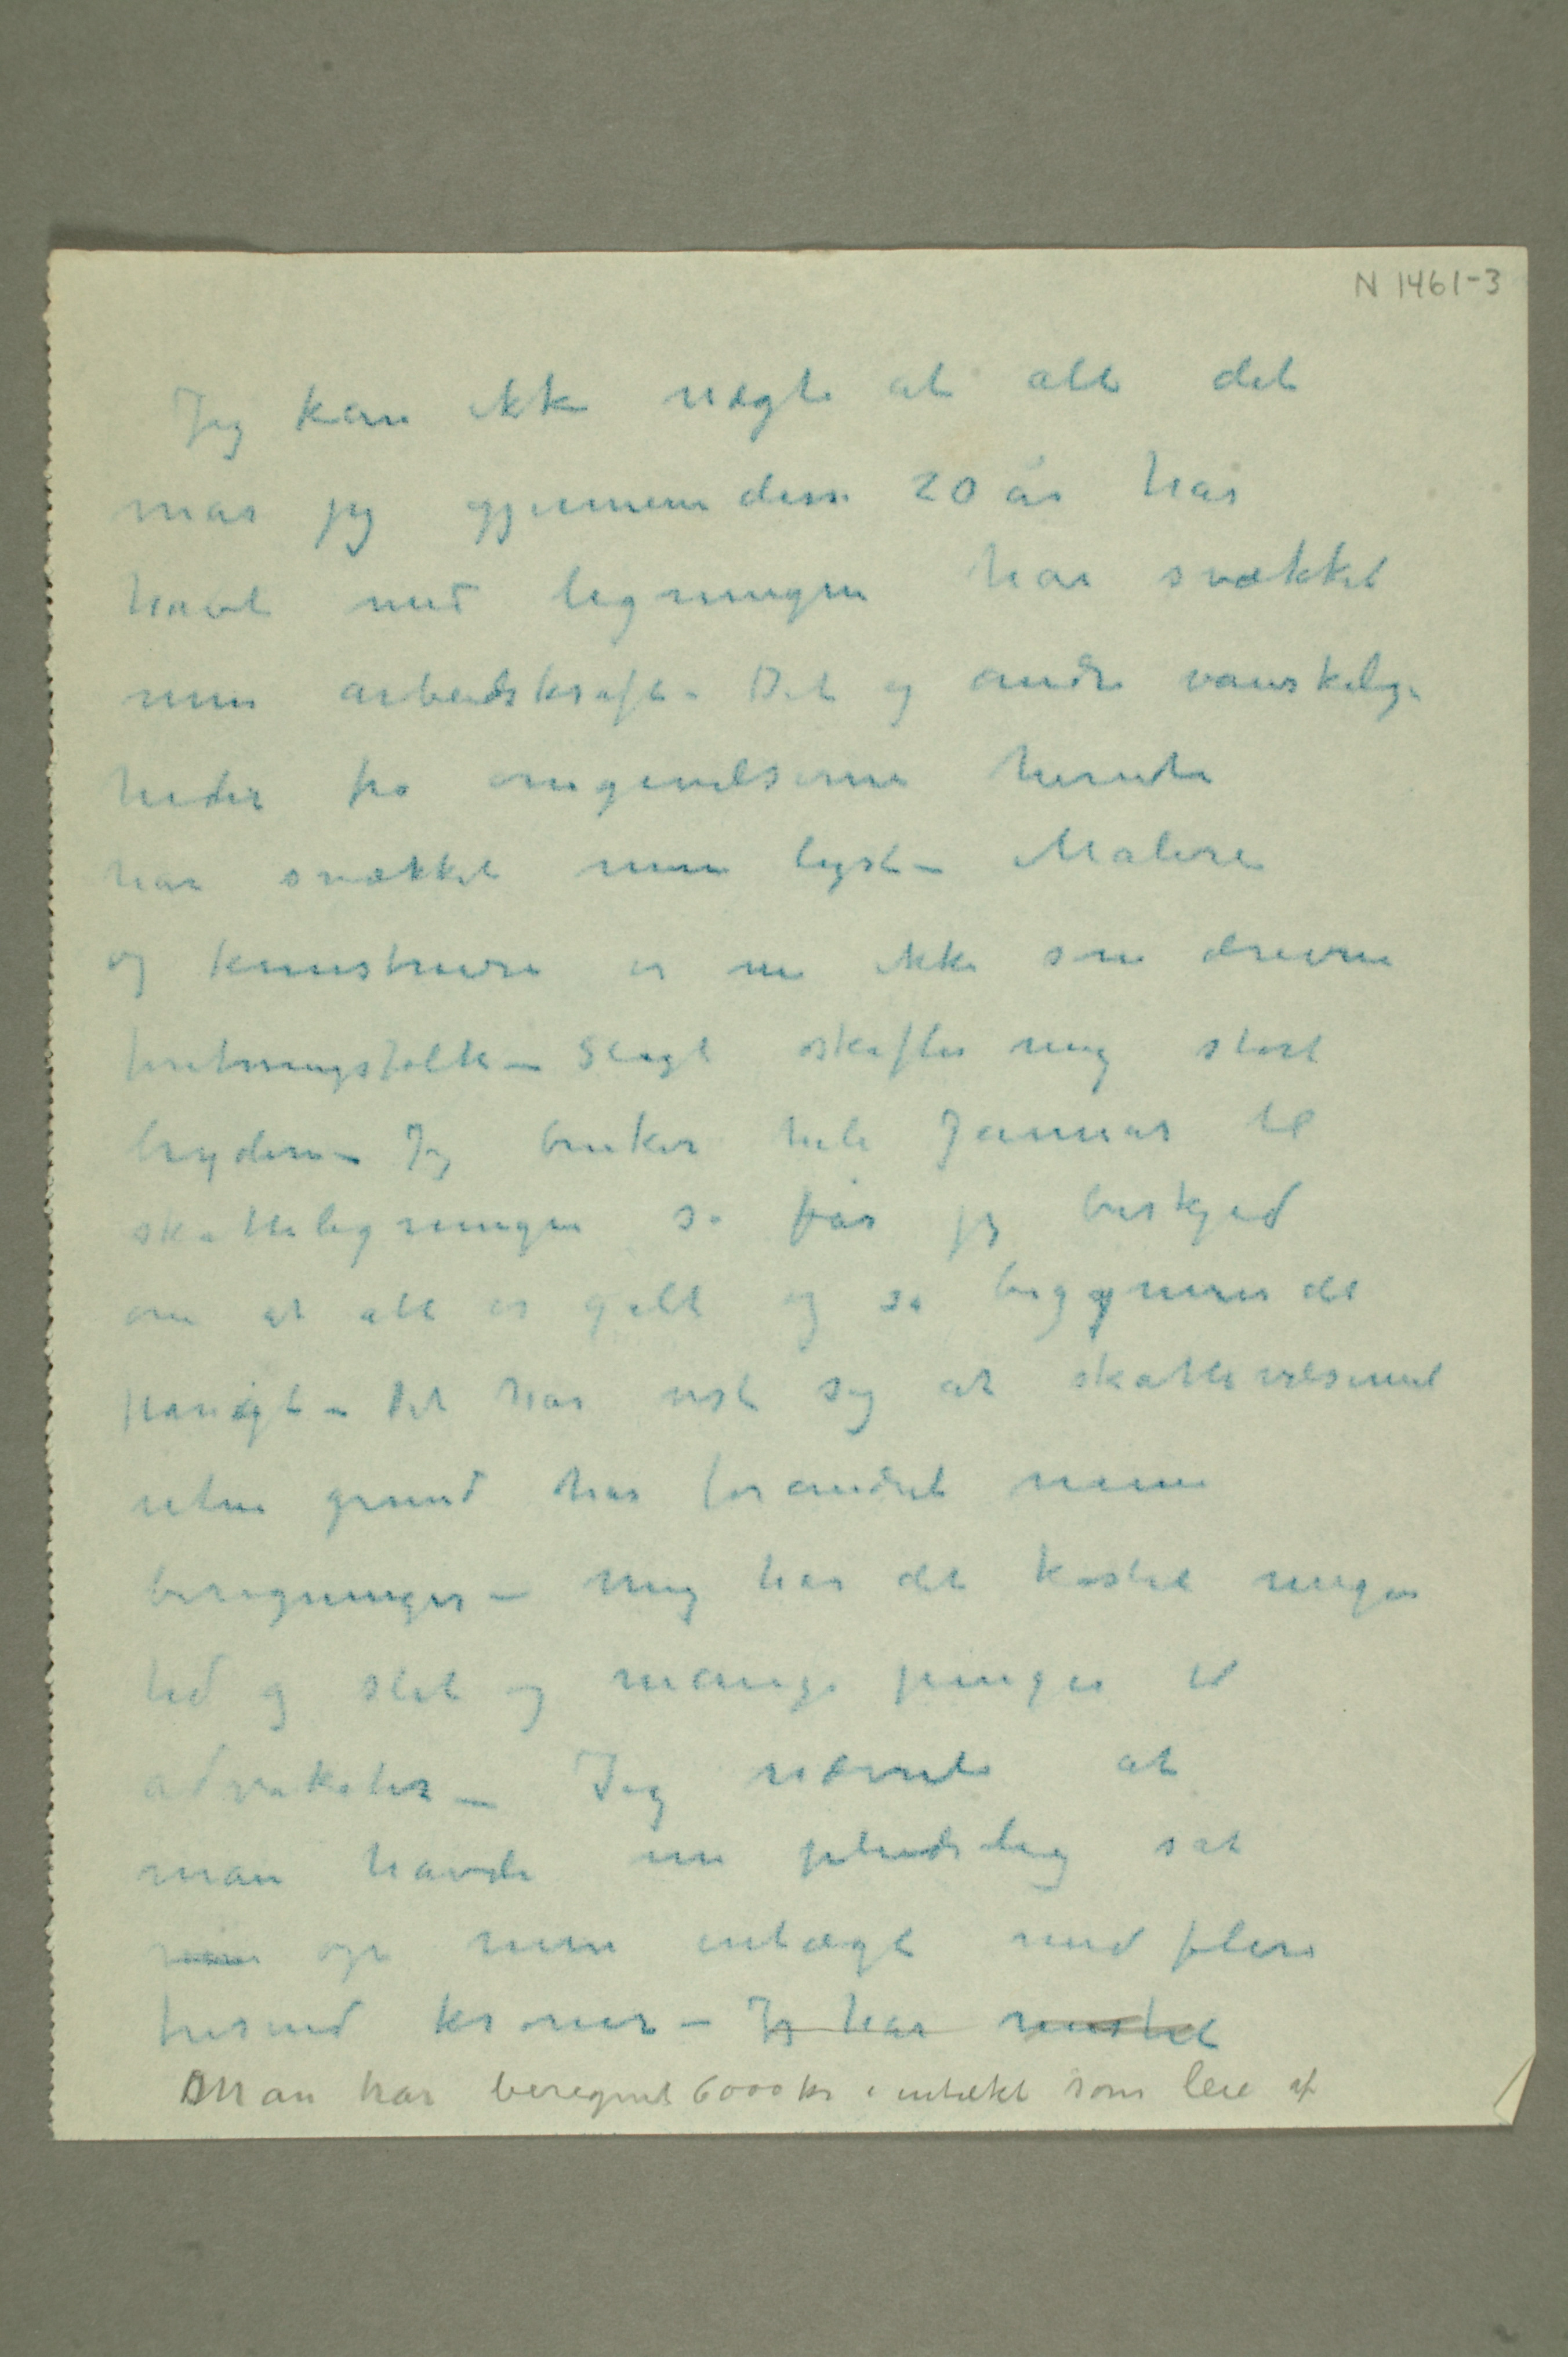 N 1461-3
Jeg kan ikke nægte at alt det
mas jeg gjennem disse 20 år har
havt med ligningen har svækket
min arbeidskraft – Det og andre vanskelig-
heder fra omgivelserne herude
har svækket min lyst – Malere
og kunstnere er nu ikke som drevne
foretningsfolk – Sligt skaffer mig stort
bryderi – Jeg bruker hele Januar til
skatteligningen så får jeg beskjed
om at alt er galt og så begynner det
påny – Det har vist sig at skattevæsenet
uten grund har forandret mine
beregninger – Mig har det kostet megen
tid og slit og mange penger til
advokater – Jeg nævnte at
man havde nu pludselig sat
min op min intægt med flere
tusind kroner – Jeg har mistet
Man har beregnet 6000 kr i intækt som leie af